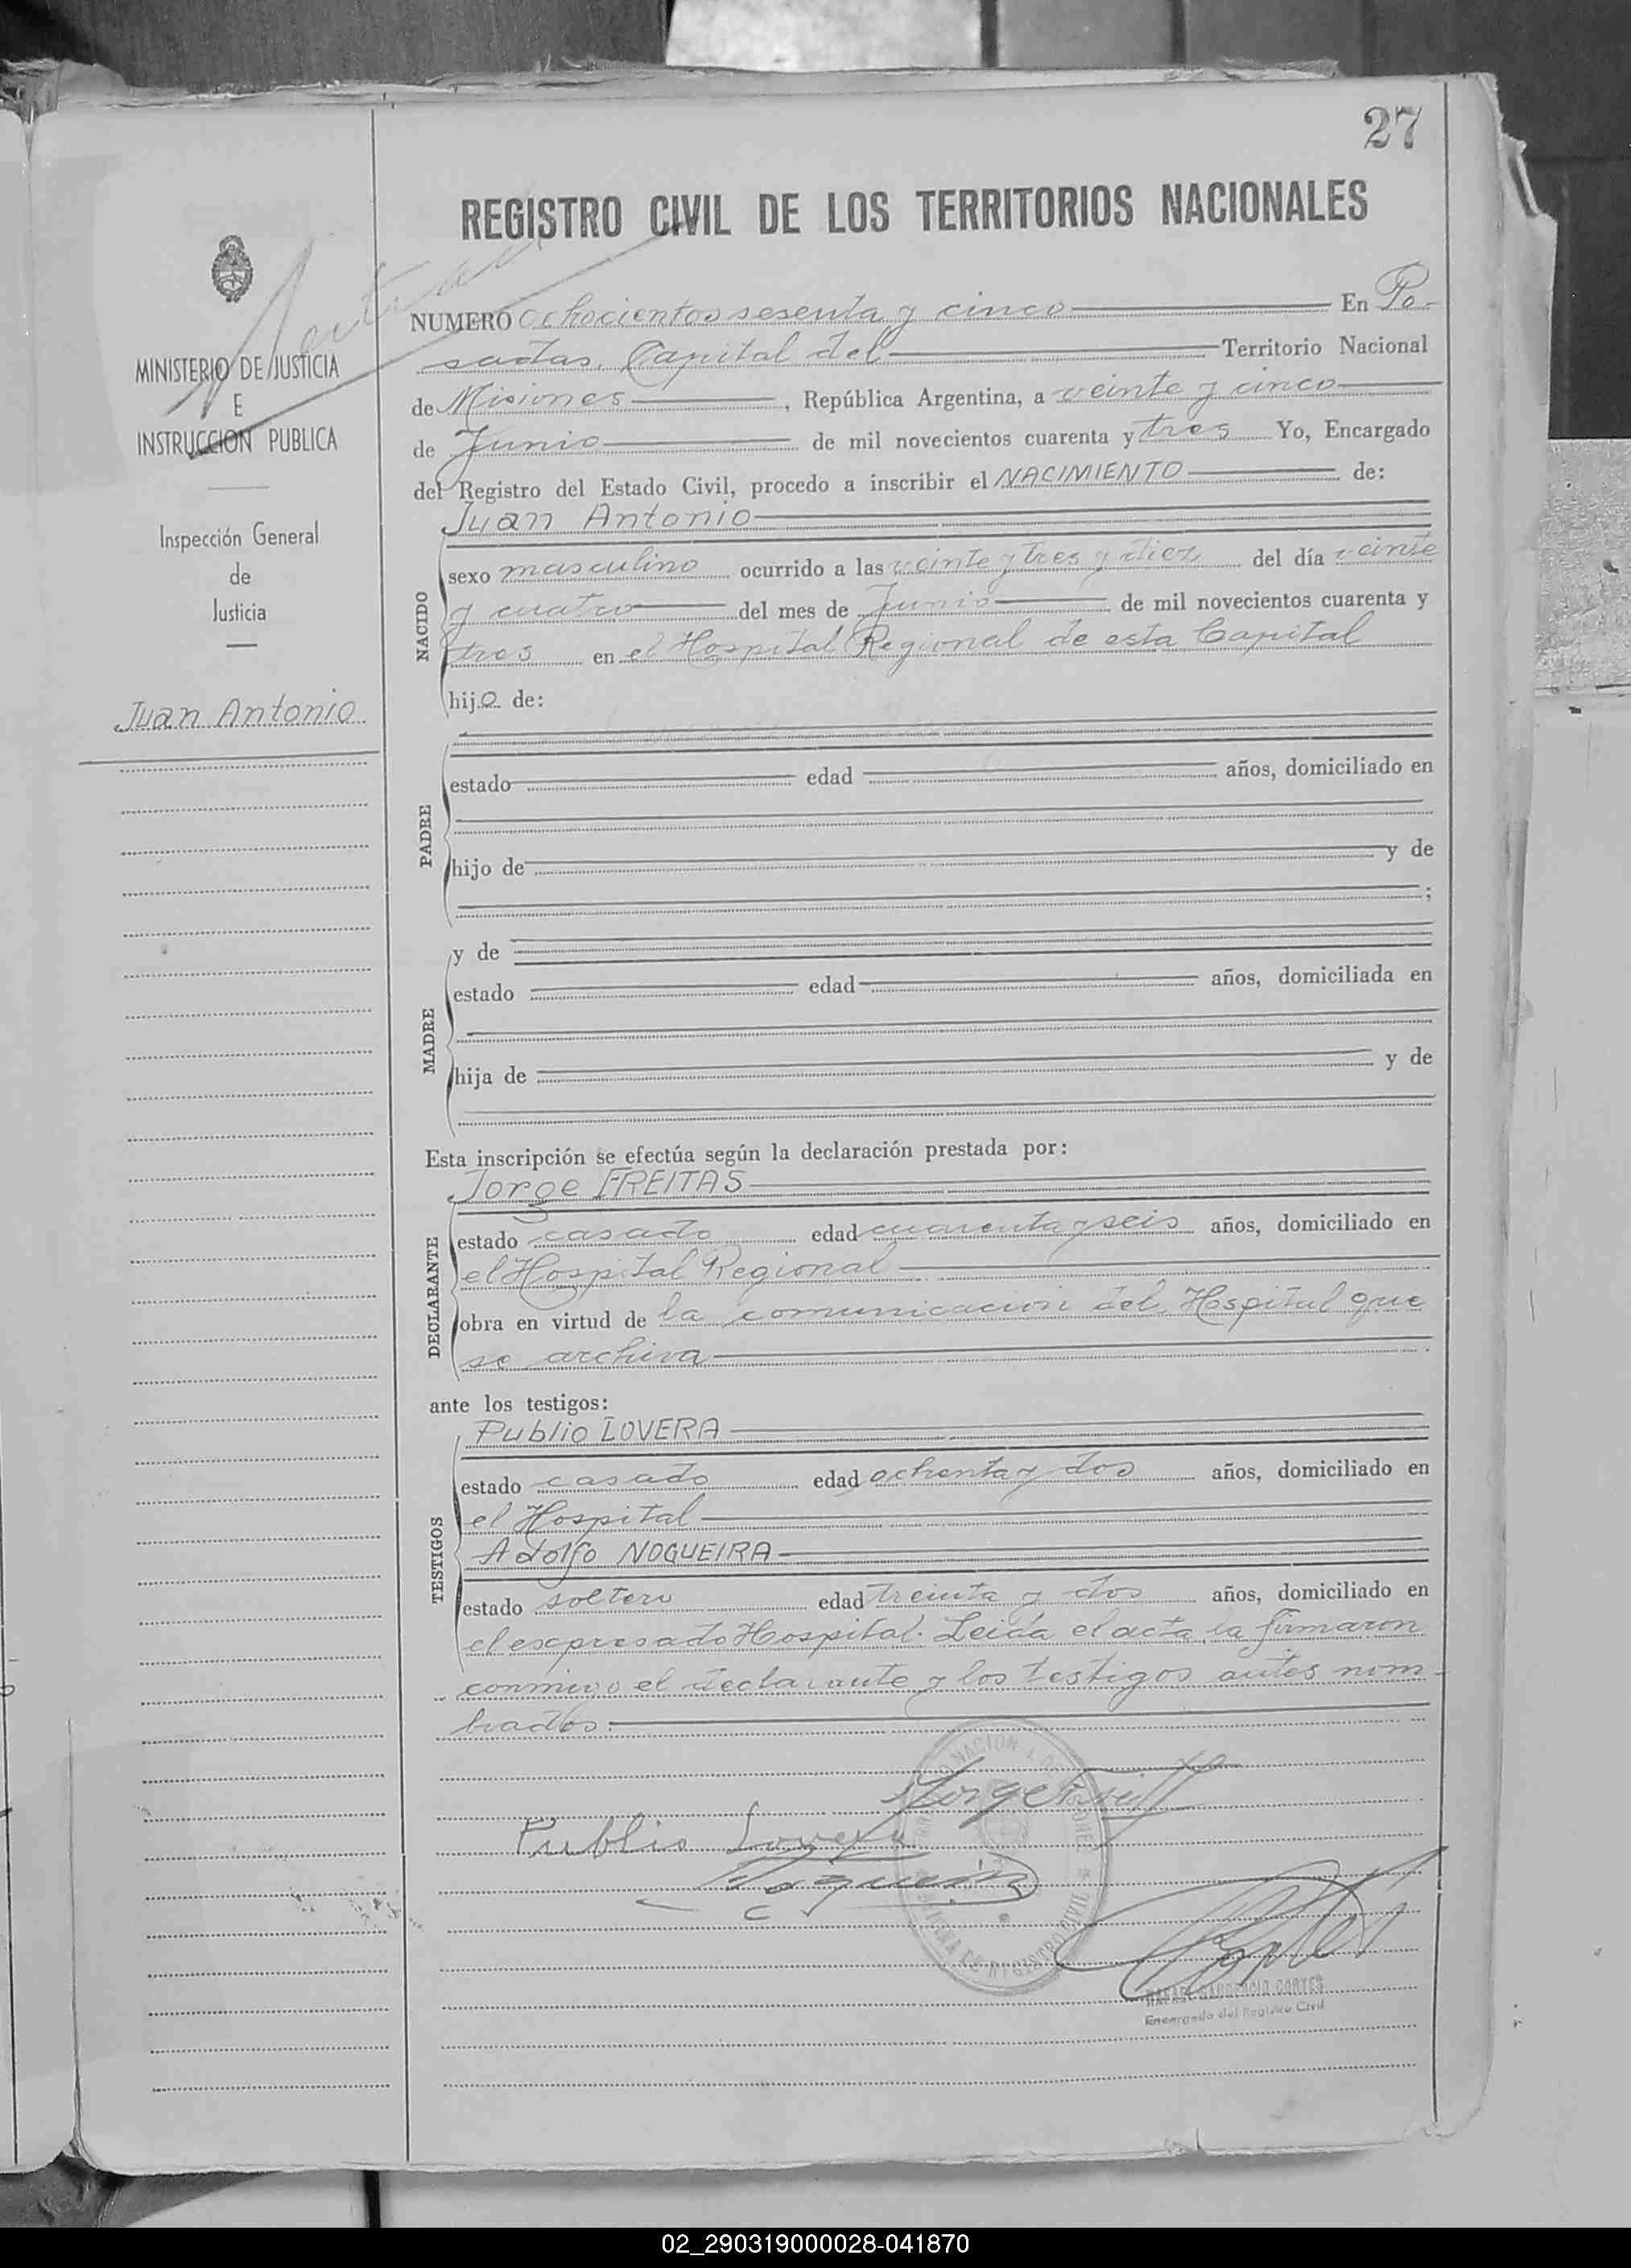 27
REGISTRO CIVIL DE LOS TERRITORIOS NACIONALES
MINISTERIO DE JUSTICIA
E
INSTRUCCION PUBLICA
Inspección General
de
Justicia
Juan Antonio
NUMERO Ochocientos sesenta y cinco En Po-
sadas, Capital del Territorio Nacional
de Misiones, República Argentina, a veinte y cinco
de Junio de mil novecientos cuarenta y tres Yo, Encargado
del Registro del Estado Civil, procedo a inscribir el NACIMIENTO de:
Juan Antonio
NACIDO
sexo masculino ocurrido a las veinte y tres y diez del día veinte
y cuatro del mes de Junio de mil novecientos cuarenta y
tres en el Hospital Regional de esta Capital
hijo de:
PADRE
estado edad años, domiciliado en
hijo de y de
;
MADRE
y de
estado edad años, domiciliada en
hija de y de
Esta inscripción se efectúa según la declaración prestada por:
Jorge FREITAS
DECLARANTE
estado casado edad cuarenta y seis años, domiciliado en
el Hospital Regional
obra en virtud de la comunicación del Hospital que
se archiva
ante los testigos:
Publio LOVERA
TESTIGOS
estado casado edad ochenta y dos años, domiciliado en
el Hospital
Adolfo NOGUEIRA
estado soltero edad treinta y dos años, domiciliado en
el expresado Hospital. Leida el acta, la firmaron
conmigo el declarante y los testigos antes nom-
brados.
Publio Lovera
CORTES
Encargado del Registro Civil
02_290319000028-041870